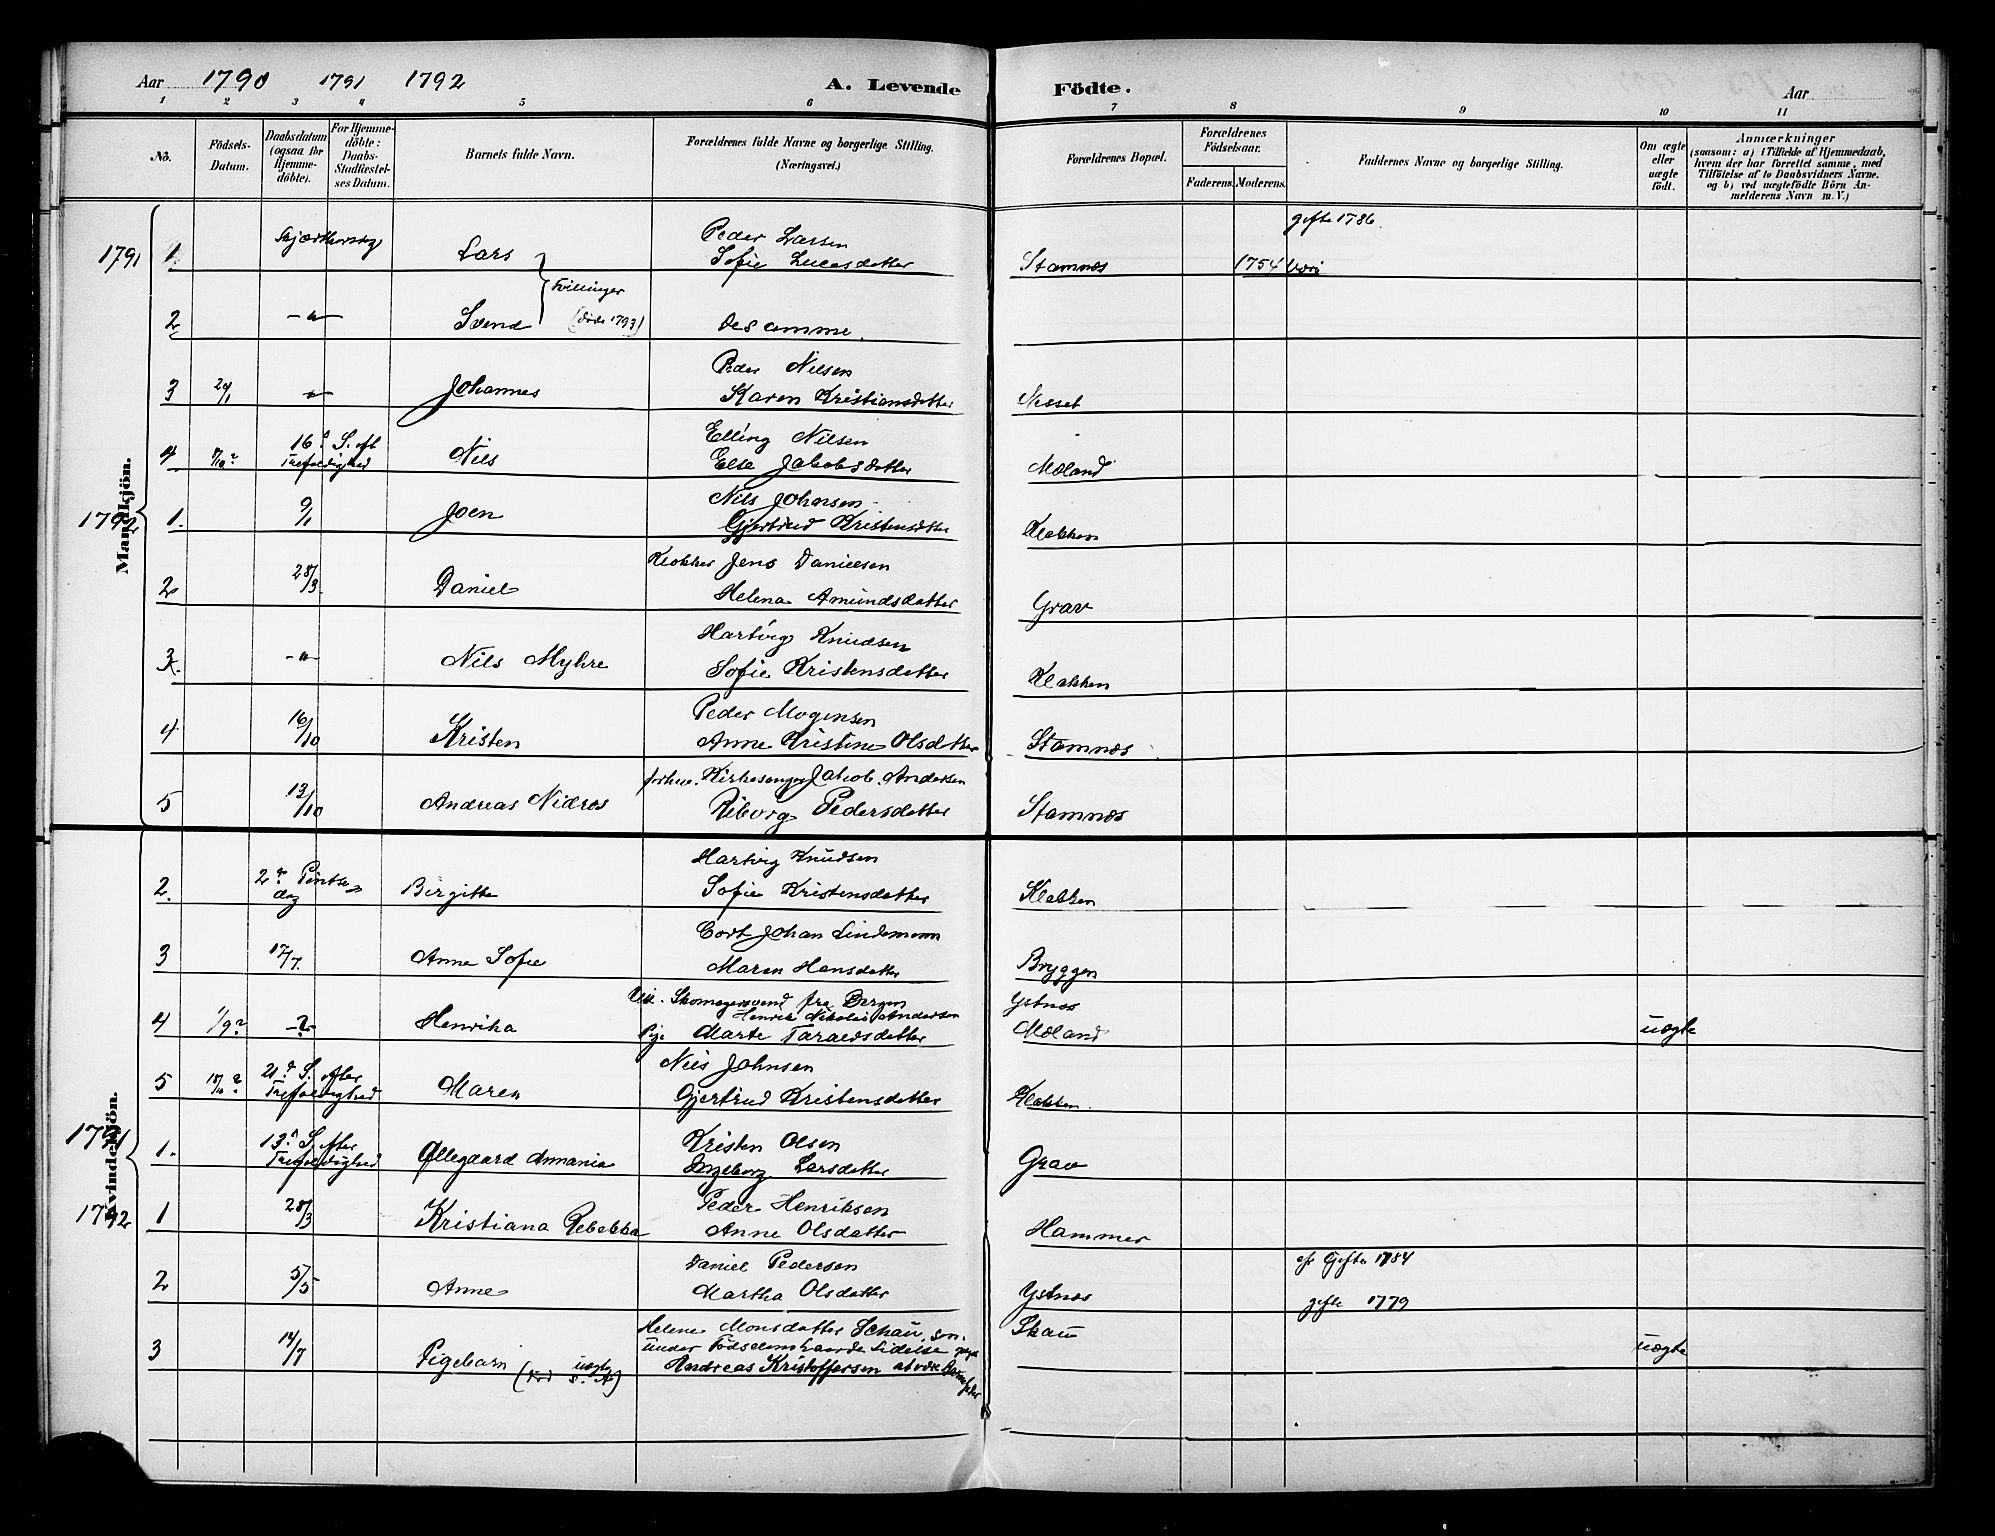 Aar 1790 1791 1792 A. Levende Födte. Aar
1 2 3 4 5 6 7 8 9 10 11
No. Födsels-Datum. Daabsdatum (ogsaa for Hjemme-döbte). For Hjemme-döbte: Daabs-Stadfæstel-ses Datum. Barnets fulde Navn. Forældrenes fulde Navne og borgerlige Stilling. (Næringsvei.) Forældrenes Bopæl. Forældrenes Födselsaar. Faderens. Moderens. Faddernes Navne og borgerlige Stilling. Om ægte eller uægte födt. Anmærkninger (saasom: a) i Tilfælde af Hjemmedaab, hvem der har forrettet samme, med Tilföielse af to Daabsvidners Navne. og b) ved uægtefödte Börn An-melderens Navn m. V.)
Mandkjön.
gifte 1786.
1791 1 Skjærthorsdag Lars Peder Larsen
Sofie Lucasdatter Stamnæs 1754
Tvillinger
2 -"- Svend (døde 1793) de samme.
3 20/1 -"- Johannes Peder Nilsen
Karen Kristiansdatter Nesset
4 16de S. eft. Trefoldighed Nils Elling Nilsen
Else Jakobsdatter Mæland
1792 1. 9/1 Joen Nils Johnsen
Gjertrud Kristensdatter Klakken
2 28/3 Daniel Klokker Jens Danielsen
Helena Amundsdatter Grav
3. -"- Nils Myhre Hartvig Knudsen
Sofie Kristensdatter Klakken
4 16/10 Kristen Peder Mogensen
Anne Kristine Olsdatter Stamnæs
5 13/10 Andreas Nidros forhen. Kirkesanger Jakob Andersen
Riborg Pedersdatter Stamnæs
Kvindekjön.
2. 2den Pintse-dag Birgitte Hartvig Knudsen
Sofie Kristensdatter Klakken
3 17/7. Anne Sofie Cort Johan Lindemann
Maren Hansdatter Bryggen
4 1/9? -?- Henrika Skomagersvend fra Bergen
Henrik Nikolai Andersen Ystnæs
Pige Marte Taraldsdatter Mæland uægte
5 21de S. efter Trefoldighed Maren Nils Johnsen
Gjertrud Kristensdatter Klakken.
1791 1. 13de S. efter Trefoldighed Øllegaard Annania Kristen Olsen
Ingeborg Larsdatter Grav
1792 1 28/3 Kristiana Rebekka Peder Henriksen
Anne Olsdatter Hammer
2 5/5 Anne Daniel Pedersen cfr Gifte 1784
Martha Olsdatter Ystnæs gifte 1779
3 14/7 Pigebarn Helene Monsdatter Schau, som Skau uægte
under Födselens haarde Lidelse
Andreas Kristoffersen at være Barnefader